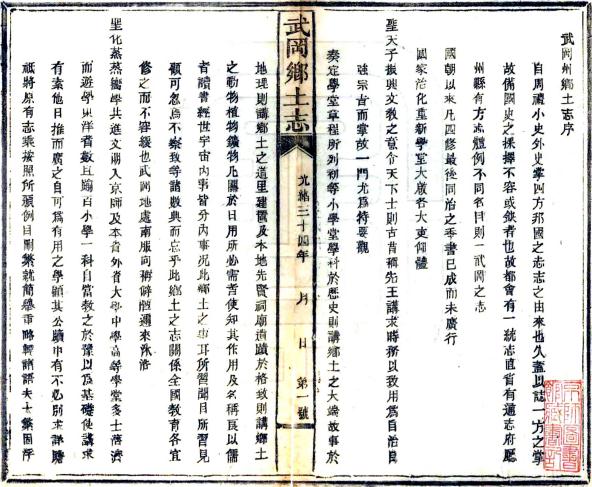 武岡州鄉土志序
自周禮小史外史掌四方邦國之志志之由來也久盖以誌一方之掌
故備國史之採擇不容或缺者也故都會有一統志直省有通志府廳
州縣有方志體例不同名目則一武岡之志
國朝以來凡四修最後同治之季書已成而未廣行
國家治化重新學堂大啟各大吏仰體
聖天子振興文教之意令天下士則古昔稱先王講求時務以致用爲自治自
強宗旨而掌故一門尤爲特要觀
奏定學堂章程所列初等小學堂學科於歷史則講鄉土之大端故事於
武岡鄉土志
光緒三十四年 月 日 第一號
地理則講鄉土之道里建置及本地先賢祠廟遺蹟於格致則講鄉土
之動物植物鑛物凡關於日用所必需者使知其作用及名稱良以儒
者讀書經世宇宙內事皆分內事况此鄉土之事耳所習聞目所習見
顧可忽焉不察致等諸數典而忘乎此鄉土之志關係全國教育各宜
修之而不容緩也武岡地處南服向稱僻陋邇來沐浴
聖化蒸蒸嚮學共進文明入京師及本省外省大學中學高等學堂多士濟濟
而遊學東洋者數且踰百小學一科自當教之於豫以爲基礎使講求
有素他日推而廣之自可爲有用之學顧其公牘中有不必別求詳贍
祇將原有志乘按照所頒例目刪繁就簡舉重略輕諸語夫士棄固陋